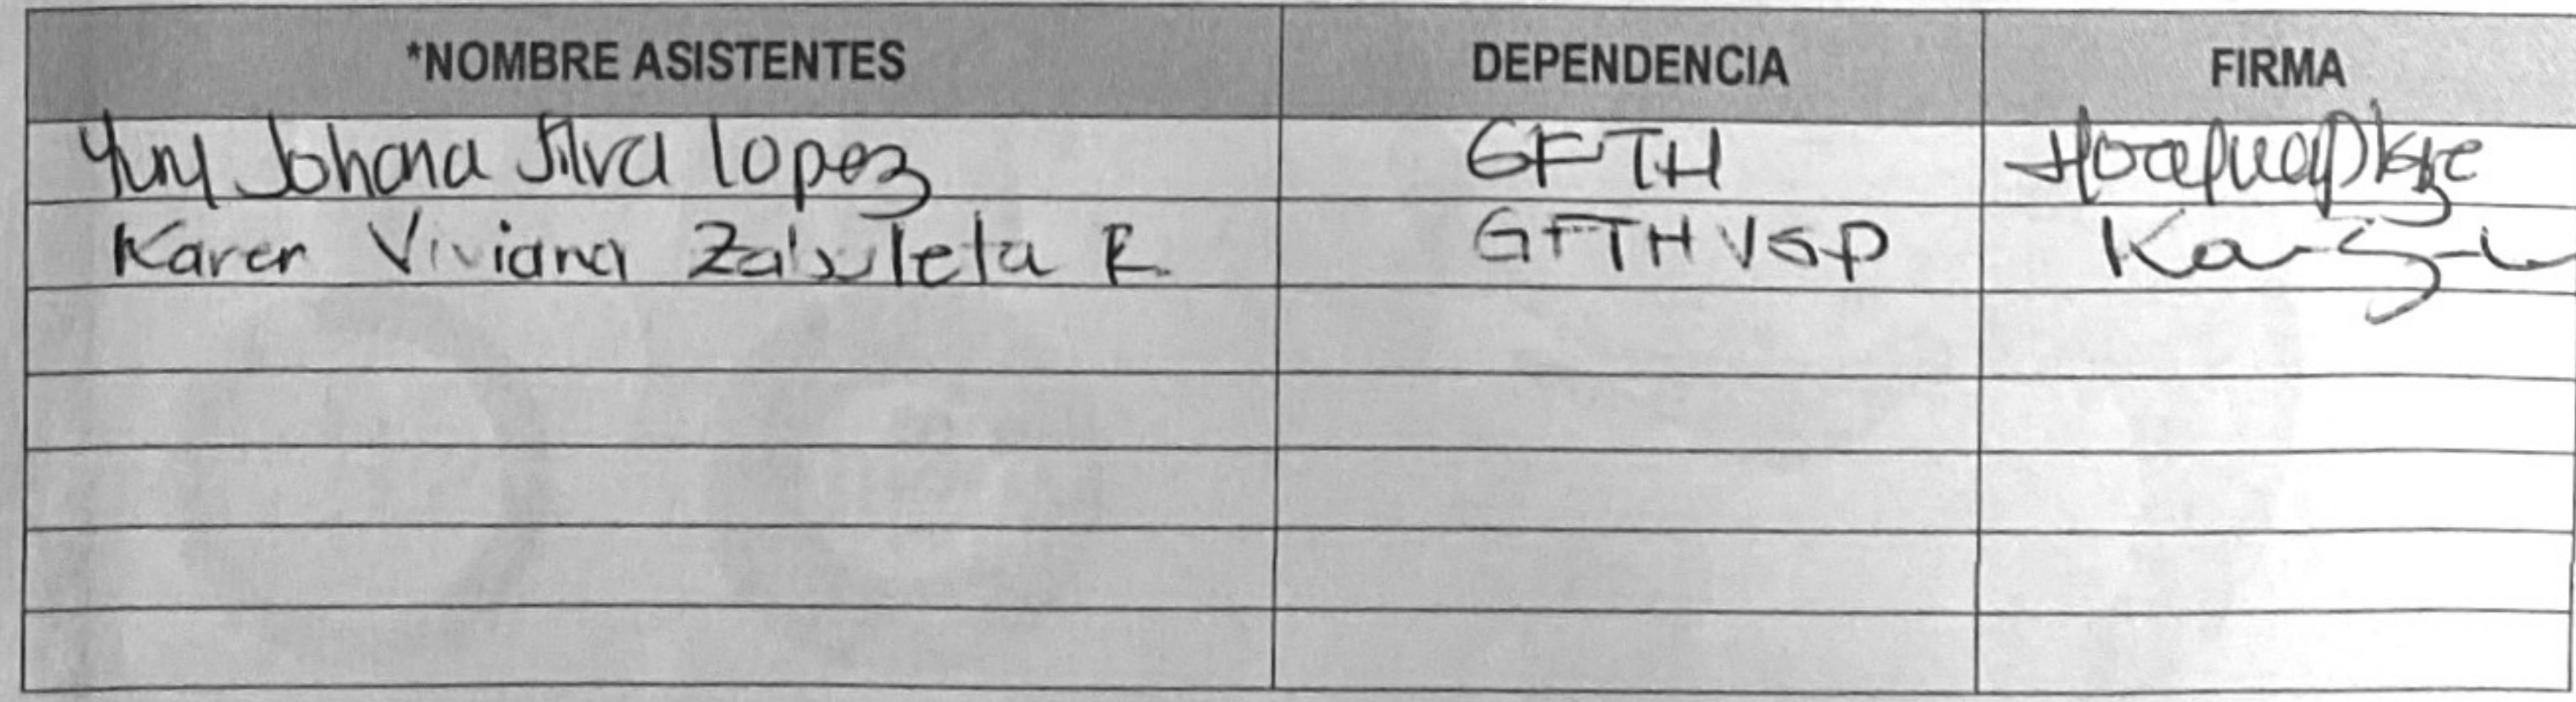 *NOMBRE ASISTENTES DEPENDENCIA FIRMA
Yury Johana Silva lopez GFTH
Karen Viviana Zabuleta R. GFTH VSP